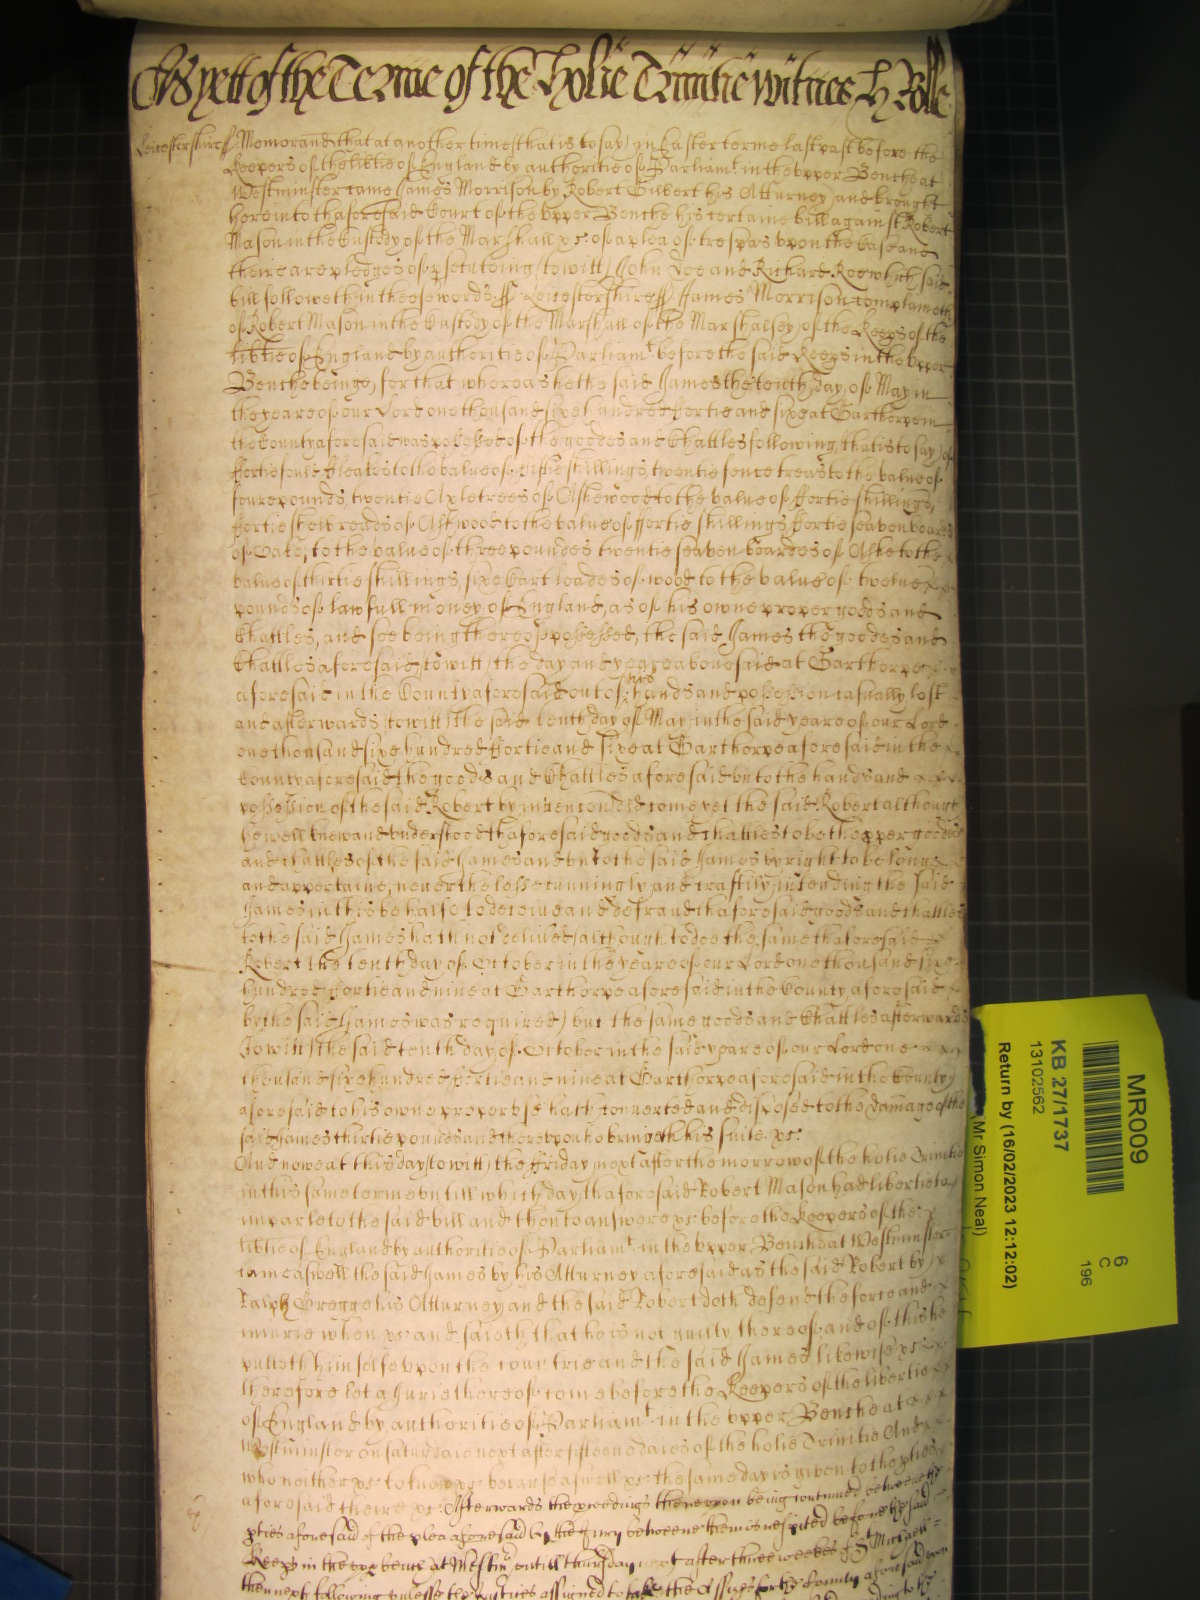 As yett of the Terme of the Holie Trinitie witnes H Rolle
Leicestershire ss Memorand that at another time (that is to say) in Easter terme last past before the
Keepers of the lib'tie of England by authoritie of Parliamt in the vpper Benche at
Westminster came James Morrison by Robert Gilbert his Atturney and brought
here into thaforesaid Court of the vpper Benche his certaine bill against Robert
Mason in the Custody of the Marshall &c: of a plea of trespas vpon the Case and
theire are pledges of p'secuteing (to witt) John Doe and Richard Roe which said
bill followeth in theese words ss Leicestershire ss James Morrison complaineth
of Robert Mason in the Custody of the Marshall of the Marshalsey of the Keep's of the
lib'tie of England by authoritie of Parliamt before the said Keep's in the vpper
Benche beinge, for that whereas he the said James the tenth day of May in
the yeare of our Lord one thousand sixe hundred ffortie and sixe at Garthorpe in
the County aforesaid was possessed of the goodes and Chattles following, that is to say, of
ffortie foule fleakes to the value of shillings, twentie fence treas to the value of
foure pounds, twentie Axletrees of Ashewood to the value of ffortie shillings,
ffortie of Ashwood to the value of ffortie shillings, ffortie seaven boards
of Oake, to the value of three poundes twentie seaven boardes of Ashe to the
value of thirtie shillings, sixe Cart loades of wood to the value of twelve
pounds of lawfull money of England, as of his owne proper goods and
Chattles, and soe being thereof possessed, the said James the goodes and
Chattles aforesaid (to witt) the day and yeare abovesaid at Garthorpe
aforesaid in the County aforesaid out of his hands and possession casually lost
and afterwards (to witt) the said tenth day of May in the said yeare of our Lord
one thousand sixe hundred ffortie and sixe at Garthorpe aforesaid in the
County aforesaid the goods and Chattles aforesaid vnto the hands and
possession of the said Robert by did come yet the said Robert although
he well knew and vnderstood thaforesaid goods and chattles to be the p'per goodes
and chattles of the said James and vnto the said James by right to belonge
and appertaine, neverthelesse cunningly and craftily intending the said
James in this behalfe to deceive and defraud thaforesaid goods and chattles
to the said James hath not deliv'ed (although to doe the same thaforesaid
Robert the tenth day of October in the yeare of our Lord one thousand sixe
hundred ffortie and nine at Garthorpe aforesaid in the County aforesaid
by the said James was required) but the same goods and Chattles afterwards
(to witt) the said tenth day of October in the said yeare of our Lord one
thousand sixe hundred ffortie and nine at Garthorpe aforesaid in the County
aforesaid to his owne proper vse hath converted and disposed to the damage of the
said James thirtie pounds and therevpon he bringeth his suite &c:
And nowe at this day (to witt) the ffriday next after the morrow of the holie Trinitie
in this same terme vntill which day thaforesaid Robert Mason had libertie to
imparle to the said bill and then to answere &c: before the Keepers of the
lib'tie of England by authoritie of Parliamt in the vpper Benche at Westminster
came aswell the said James by his Atturney aforesaid as the said Robert by
Ralph Gregge his Atturney and the said Robert doth defend the force and
iniurie when &c: and saieth that he is not guilty thereof and of this he
putteth himselfe vpon the countrie and the said James likewise &c:
therefore let a Jurie thereof come before the Keepers of the libertie
of England by authoritie of Parliamt in the vpper Benche at
Westminster on saturdaie next after fifteene daies of the holie Trinitie And
who neither &c: to &c: because aswell &c: the same day is given to the p'ties
aforesaid theire &c: Afterwards the p'ceeding thereupon being continued betweene the
p'ties aforesaid of the plea aforesaid by the Jury betweene them is respited before the said
Keep's in the vpp' bench at Westm' vntill thursday next after three weekes of St Michaell
then next following vnlesse the Justices assigned to take the Assizes for the County aforesaid
MR009
KB 27/1737
13102562
Return by (16/02/2023 12:12:02)
(Mr Simon Neal)
6
C
196